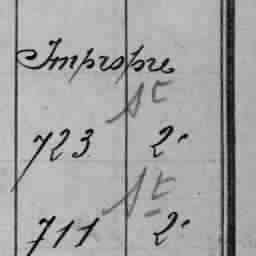 Impropre
1t
723 2e
1t
711 2e